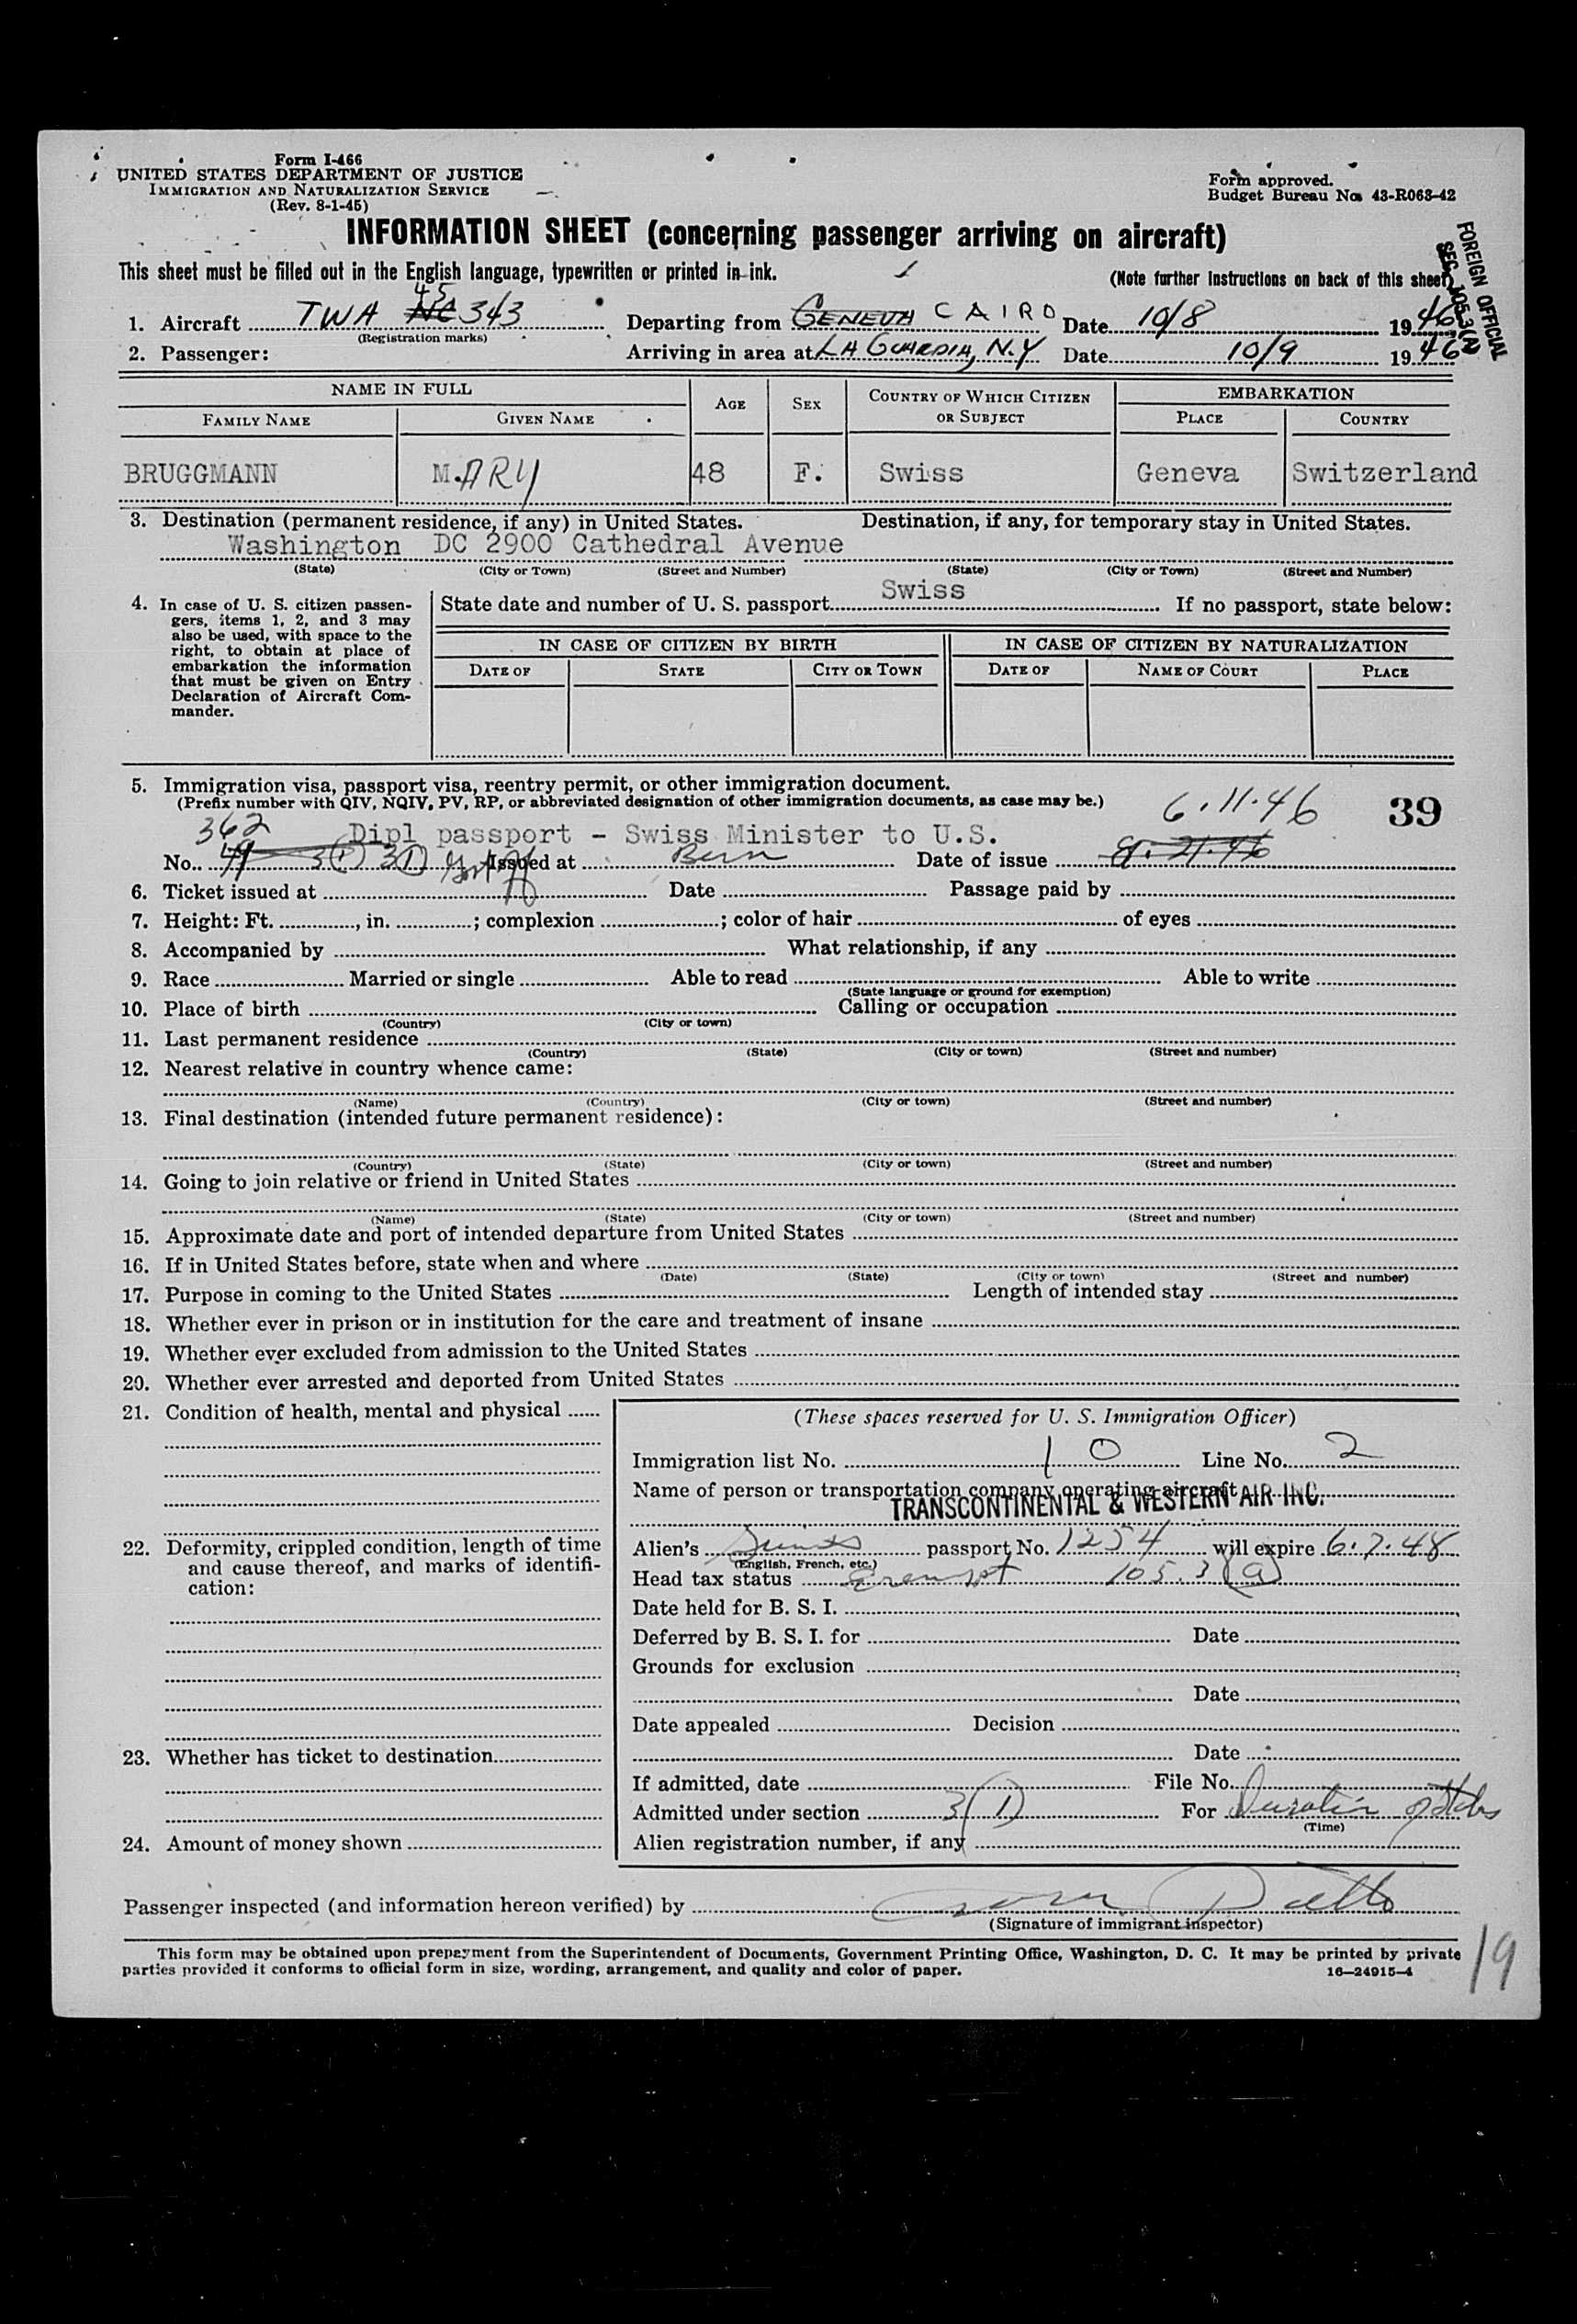 Form I-466
UNITED STATES DEPARTMENT OF JUSTICE
IMMIGRATION AND NATURALIZATION SERVICE
(Rev. 8-1-45)
Form approved.
Budget Bureau No. 43-R063-42
INFORMATION SHEET (concerning passenger arriving on aircraft)
This sheet must be filled out in the English language, typewritten or printed in ink.
(Note further instructions on back of this sheet
FOREIGN OFFICIAL
SEC. 105.3(a)
1. Aircraft TWA NC 45 343 Departing from GENEVA CAIRO Date 10/8 1946
(Registration marks)
2. Passenger: Arriving in area at LA GUARDIA, N.Y Date 10/9 1946
NAME IN FULL AGE SEX COUNTRY OF WHICH CITIZEN OR SUBJECT EMBARKATION
FAMILY NAME GIVEN NAME PLACE COUNTRY
BRUGGMANN M.ARY 48 F. Swiss Geneva Switzerland
3. Destination (permanent residence, if any) in United States. Destination, if any, for temporary stay in United States.
Washington DC 2900 Cathedral Avenue
(State) (City or Town) (Street and Number) (State) (City or Town) (Street and Number)
4. In case of U. S. citizen passengers, items 1, 2, and 3 may also be used, with space to the right, to obtain at place of embarkation the information that must be given on Entry Declaration of Aircraft Commander.
State date and number of U. S. passport Swiss If no passport, state below:
IN CASE OF CITIZEN BY BIRTH IN CASE OF CITIZEN BY NATURALIZATION
DATE OF STATE CITY OR TOWN DATE OF NAME OF COURT PLACE
5. Immigration visa, passport visa, reentry permit, or other immigration document.
(Prefix number with QIV, NQIV, PV, RP, or abbreviated designation of other immigration documents, as case may be.)
6.11.46 39
362 Dipl passport - Swiss Minister to U.S.
No. 3(1) 3(1) Issued at Bern Date of issue
6. Ticket issued at Date Passage paid by
7. Height: Ft. , in. ; complexion ; color of hair of eyes
8. Accompanied by What relationship, if any
9. Race Married or single Able to read Able to write
(State language or ground for exemption)
10. Place of birth Calling or occupation
(Country) (City or town)
11. Last permanent residence
(Country) (State) (City or town) (Street and number)
12. Nearest relative in country whence came:
(Name) (Country) (City or town) (Street and number)
13. Final destination (intended future permanent residence):
(Country) (State) (City or town) (Street and number)
14. Going to join relative or friend in United States
(Name) (State) (City or town) (Street and number)
15. Approximate date and port of intended departure from United States
16. If in United States before, state when and where
(Date) (State) (City or town) (Street and number)
17. Purpose in coming to the United States Length of intended stay
18. Whether ever in prison or in institution for the care and treatment of insane
19. Whether ever excluded from admission to the United States
20. Whether ever arrested and deported from United States
21. Condition of health, mental and physical
22. Deformity, crippled condition, length of time and cause thereof, and marks of identification:
23. Whether has ticket to destination
24. Amount of money shown
(These spaces reserved for U. S. Immigration Officer)
Immigration list No. 10 Line No. 2
Name of person or transportation company operating aircraft
TRANSCONTINENTAL & WESTERN AIR INC.
Alien's Swiss passport No. 1254 will expire 6.7.48
(English, French, etc.)
Head tax status Exempt 105.3(a)
Date held for B. S. I.
Deferred by B. S. I. for Date
Grounds for exclusion
Date
Date appealed Decision
Date
If admitted, date File No.
Admitted under section 3(1) For Duration of Status
(Time)
Alien registration number, if any
Passenger inspected (and information hereon verified) by
(Signature of immigrant inspector)
This form may be obtained upon prepayment from the Superintendent of Documents, Government Printing Office, Washington, D. C. It may be printed by private
parties provided it conforms to official form in size, wording, arrangement, and quality and color of paper. 16—24915-4
19